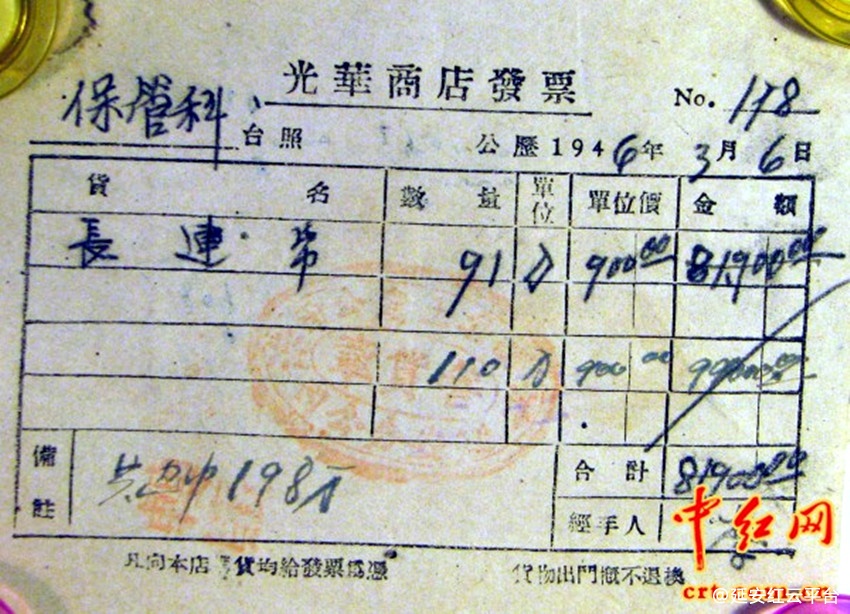 光華商店發票
No. 118
保管科 台照
公歷1946年3月6日
貨名 數量 單位 單位價 金額
長連帋 91 刀 900 00 81900 00
110 刀 900 00 99000 00
備註
合計 81900 00
經手人
凡向本店 貨均給發票為憑
貨物出門概不退換
中红网
crt.com.cn
@延安红云平台